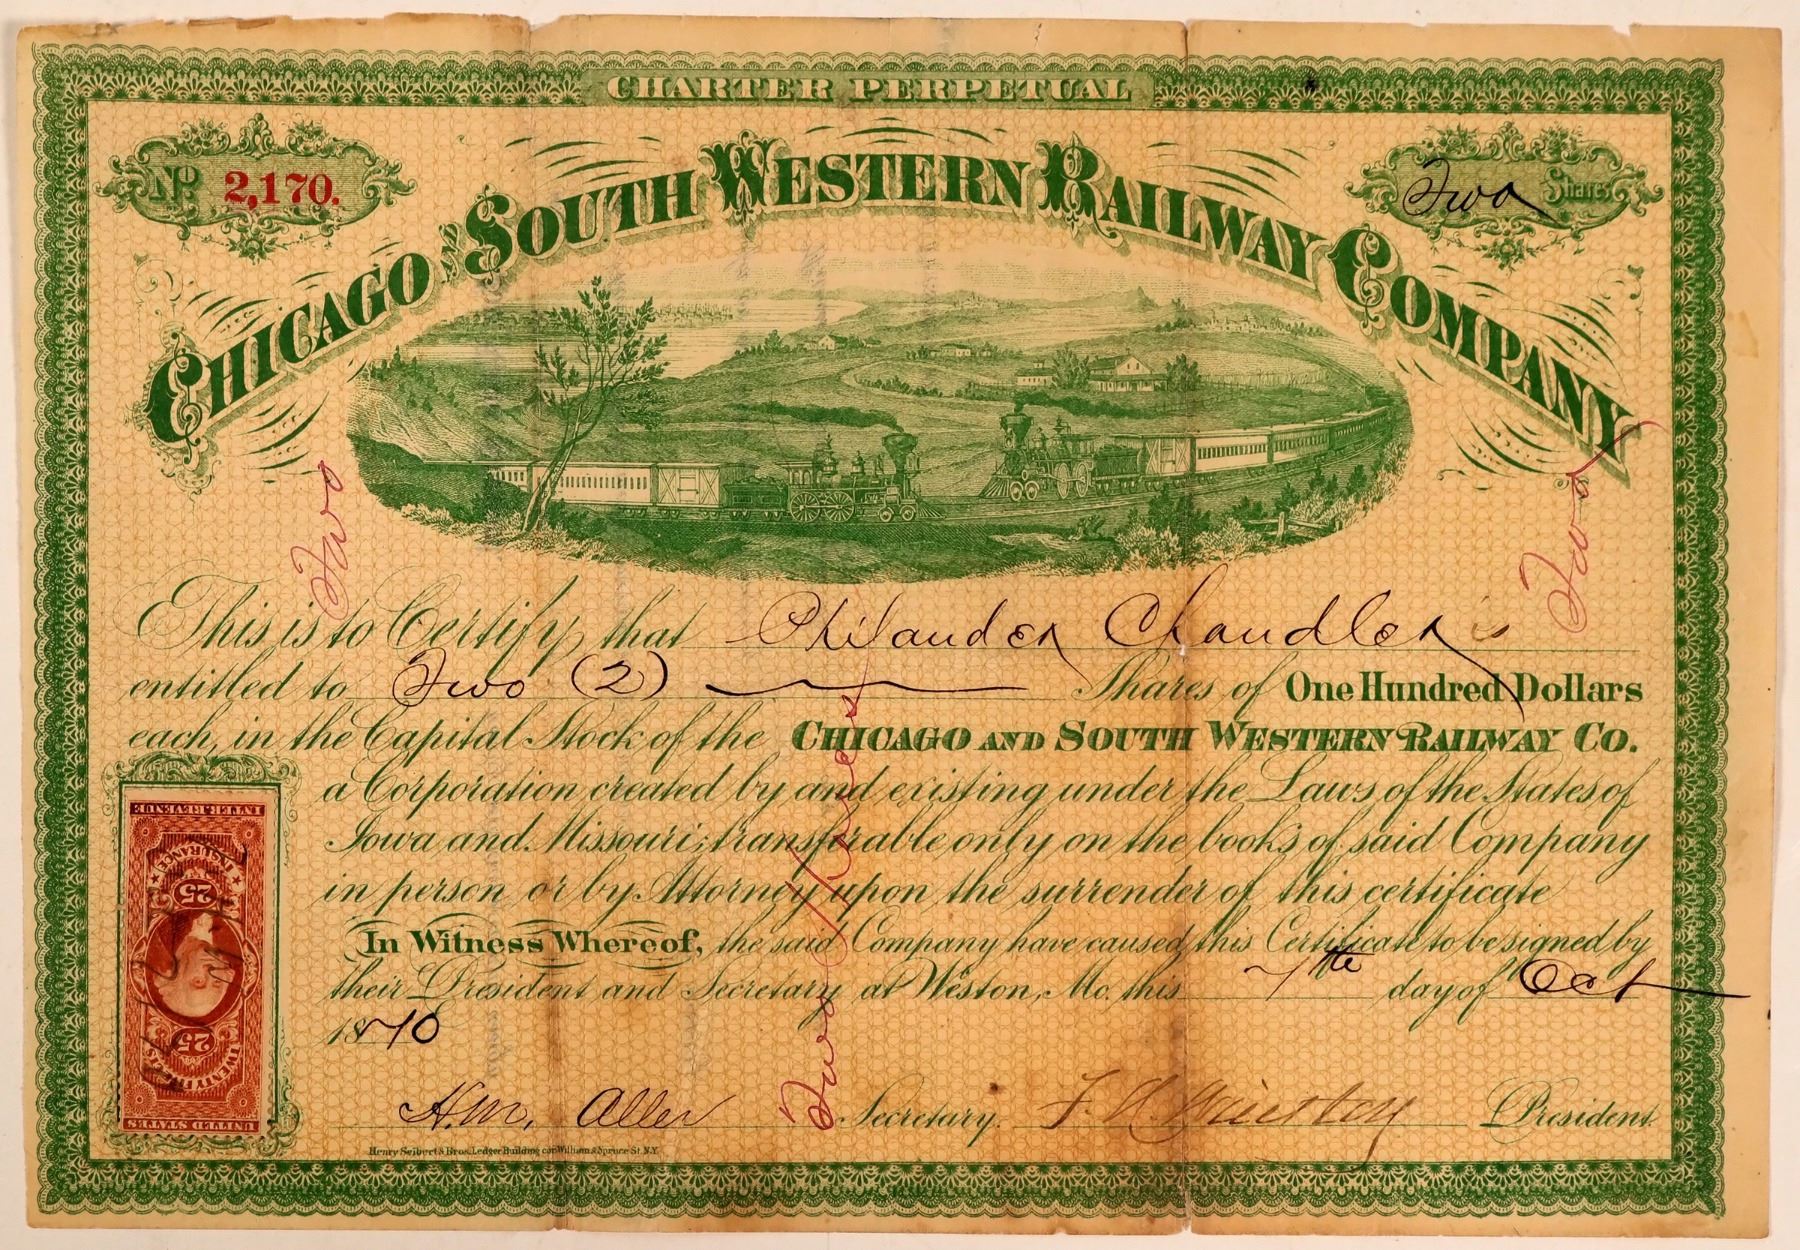 CHARTER PERPETUAL
No 2,170.
Two Shares
CHICAGO AND SOUTH WESTERN RAILWAY COMPANY
Two
Two
This is to Certify, that Philander Chandler is
entitled to Two (2) Shares of One Hundred Dollars
each, in the Capital Stock of the CHICAGO AND SOUTH WESTERN RAILWAY CO.
a Corporation created by and existing under the Laws of the States of
Iowa and Missouri; transfirable only on the books of said Company
in person or by Attorney upon the surrender of this certificate
In Witness Whereof, the said Company have caused this Certificate to be signed by
their President and Secretary at Weston, Mo. this 7th day of Oct
1870
Two Shares
H.M. Allen Secretary. President.
Henry Seibert & Bros. Ledger Building cor William & Spruce St. N.Y.
INTER. REVENUE
INSURANCE
25 25
TWENTY FIVE CENTS
UNITED STATES